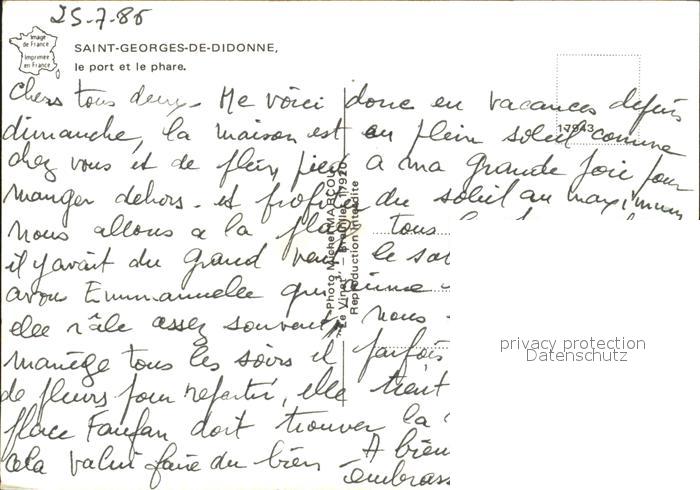 25-7-86
Image
de France
Imprimée
en France
SAINT-GEORGES-DE-DIDONNE,
le port et le phare.
Chers tous deux. Me voici donc en vacances depuis
dimanche, la maison est en plein soleil comme
chez vous et de plein pied à ma grande joie pour
manger dehors. et profiter du soleil au maximum
nous allons a la plage tous
il y avait du grand vent, le
avons Emmanuelle qui
elle râle assez souvent, nous
manège tous les soirs il parfois
de fleurs pour repartir, elle tient
place Fanfan doit trouver la
cela va lui faire du bien
A bien
embrass
17943
Photo Michel MARCOU
"Le Vinet" — 17920
Reproduction interdite
privacy protection
Datenschutz